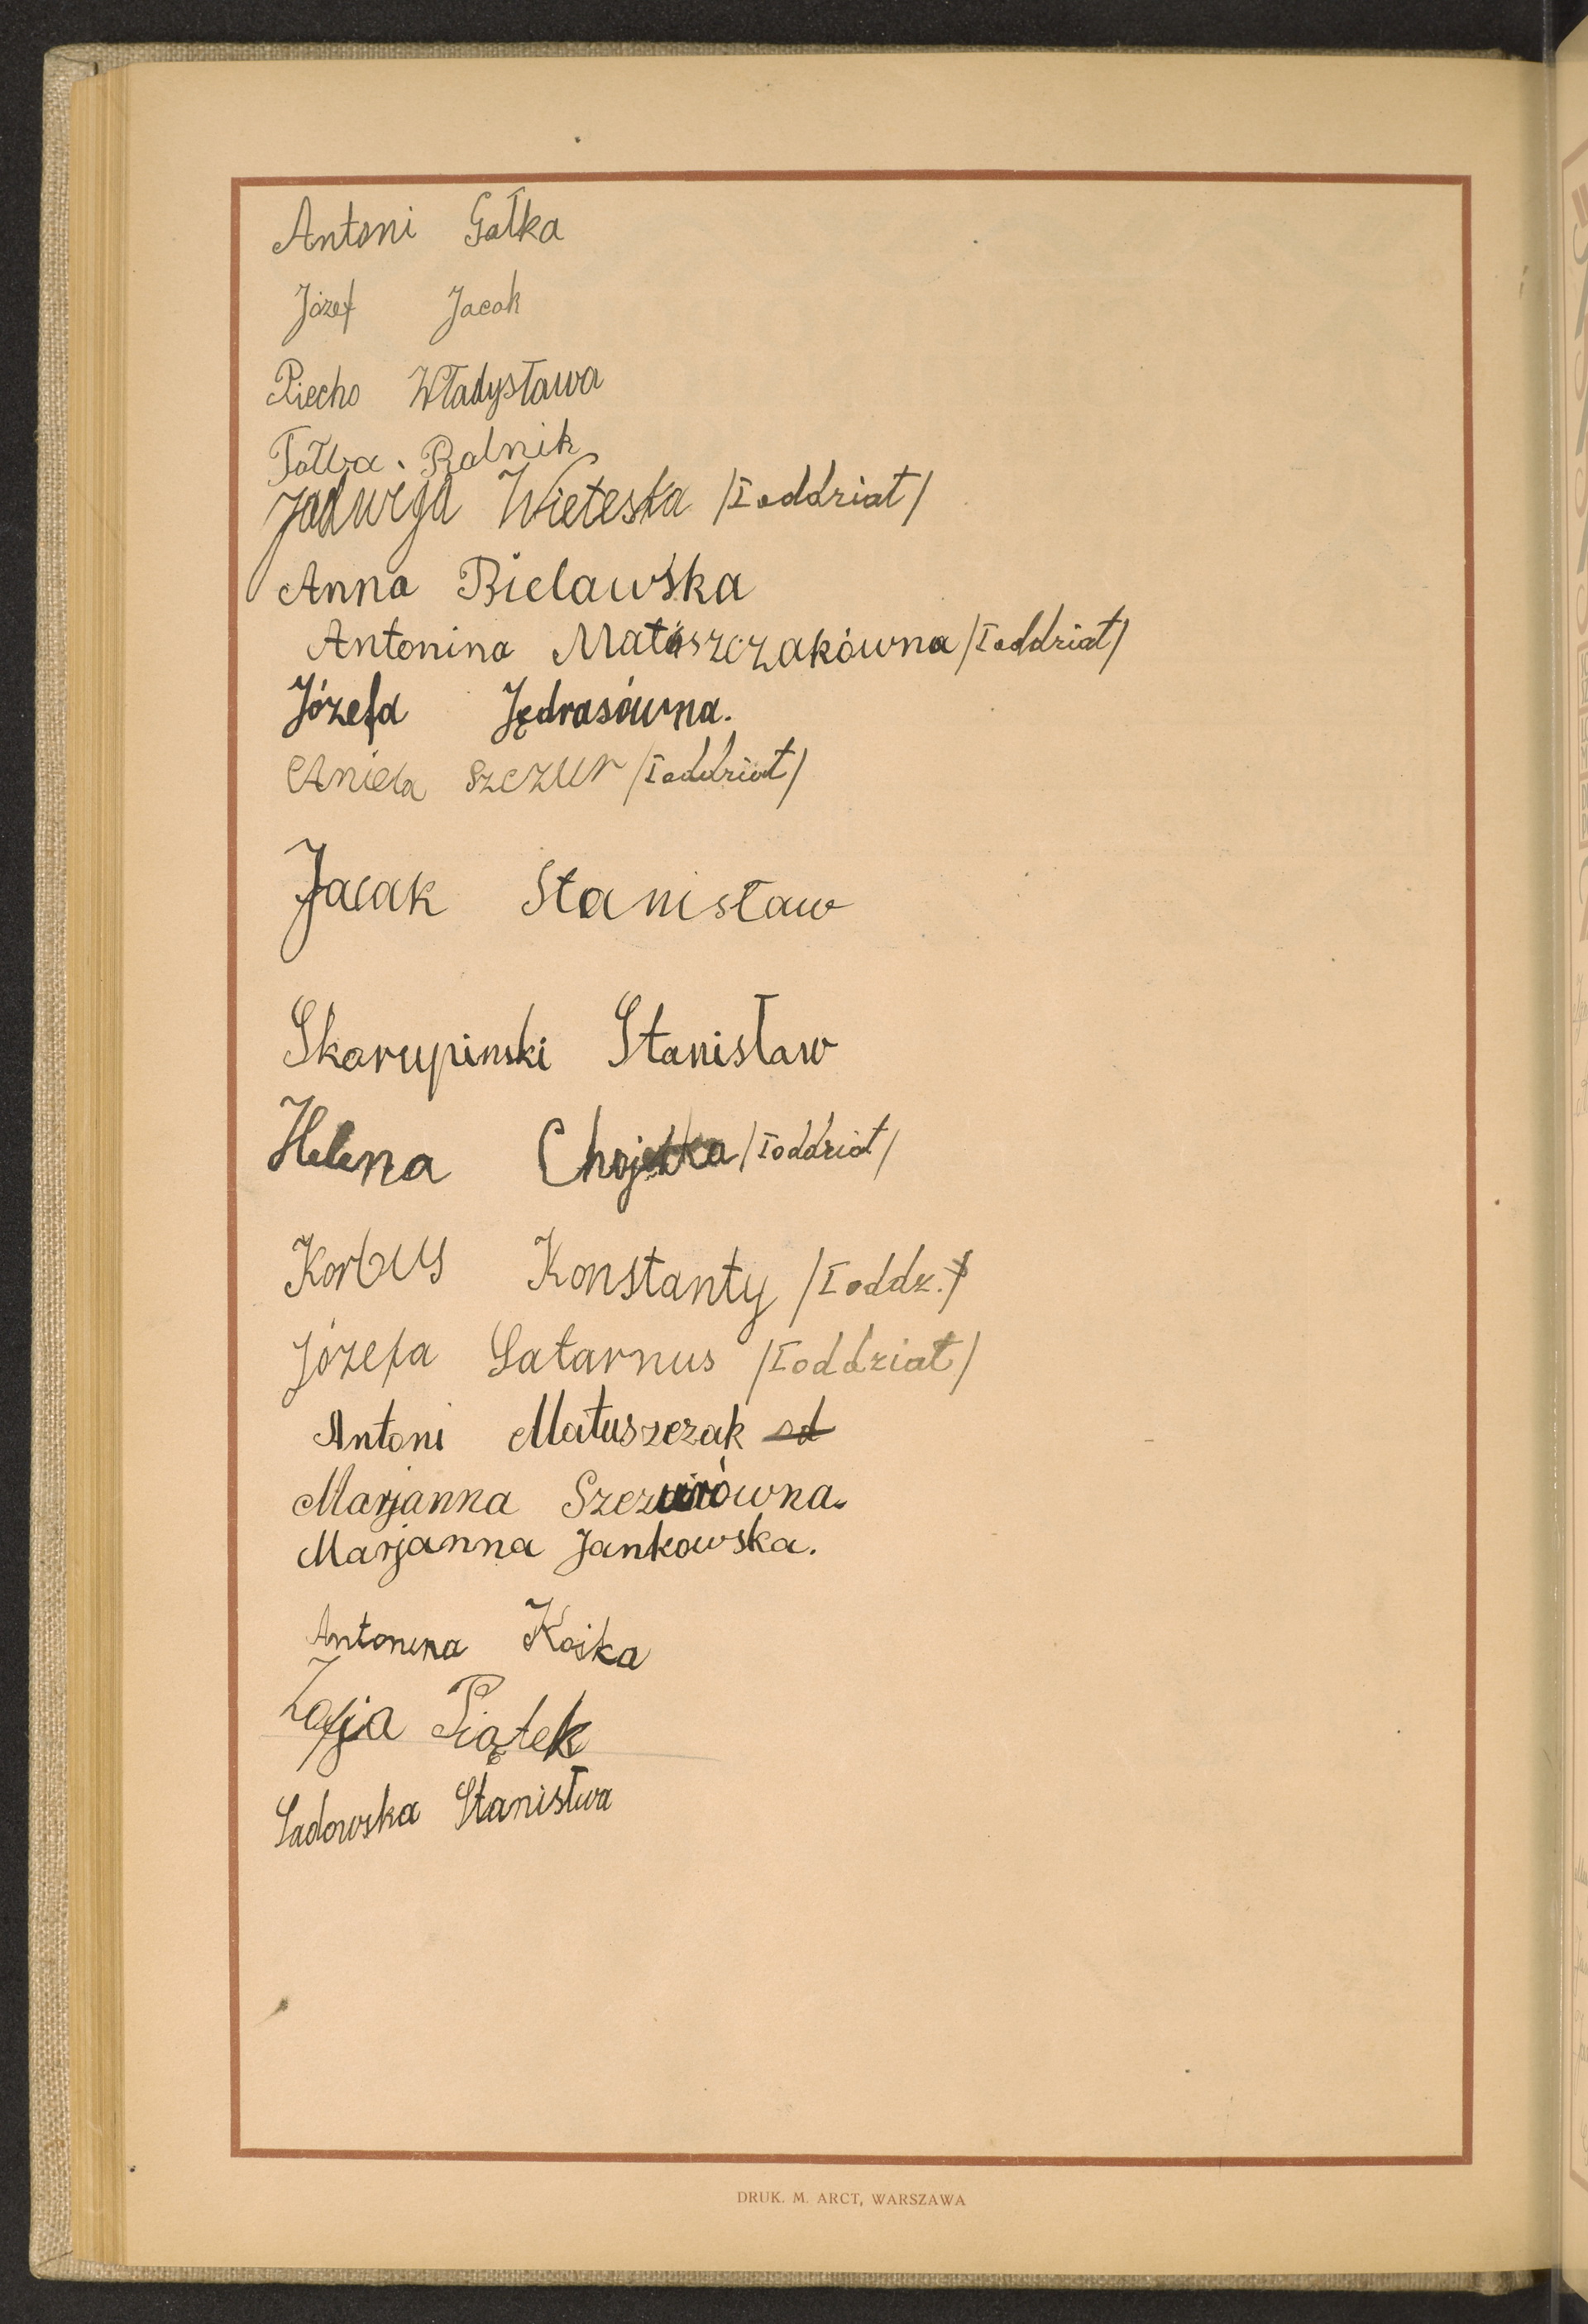 Antoni Gałka
Józef Jacak
Piecho Władysława
Tołba. Rolnik
Jadwiga Wieteska /I oddział/
Anna Bielawska
Antonina Matuszczakówna /I oddział/
Józefa Jędrasówna.
Aniela Szczur /I oddział/
Jacak Stanisław
Skarupinski Stanisław
Helena Chojecka /I oddział/
Korbus Konstanty /I oddz./
Józefa Latarnus /I oddział/
Antoni Matuszczak od
Marjanna Szczurówna.
Marjanna Jankowska.
Antonina Kośka
Zofja Piątek
Sadowska Stanisłwa
DRUK. M. ARCT, WARSZAWA